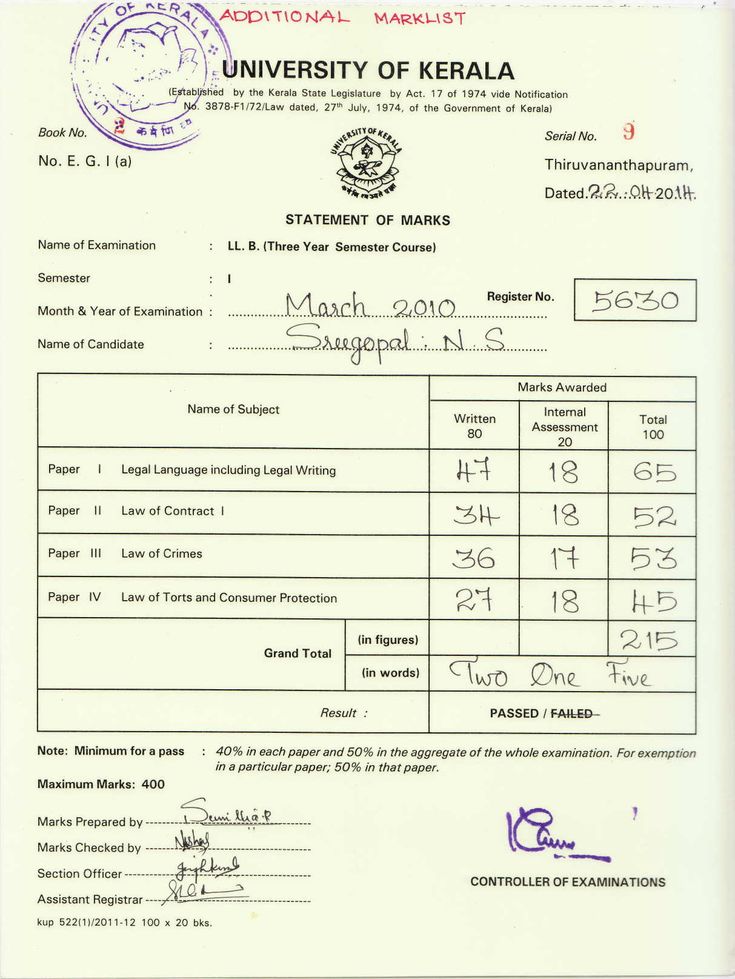 ADDITIONAL MARKLIST
UNIVERSITY OF KERALA
(Established by the Kerala State Legislature by Act. 17 of 1974 vide Notification
No. 3878-F1/72/Law dated, 27th July, 1974, of the Government of Kerala)
Book No. 2
Serial No. 9
No. E. G. I (a)
UNIVERSITY OF KERALA
Thiruvananthapuram,
Dated.22.04.2014.
STATEMENT OF MARKS
Name of Examination : LL. B. (Three Year Semester Course)
Semester : I
Month & Year of Examination : March 2010 Register No. 5630
Name of Candidate : Sreegopal. N. S
Name of Subject Marks Awarded
Written 80 Internal Assessment 20 Total 100
Paper I Legal Language including Legal Writing 47 18 65
Paper II Law of Contract I 34 18 52
Paper III Law of Crimes 36 17 53
Paper IV Law of Torts and Consumer Protection 27 18 45
Grand Total (in figures) 215
(in words) Two One Five
Result : PASSED / FAILED
Note: Minimum for a pass : 40% in each paper and 50% in the aggregate of the whole examination. For exemption
in a particular paper; 50% in that paper.
Maximum Marks: 400
Marks Prepared by
Marks Checked by
Section Officer
Assistant Registrar
CONTROLLER OF EXAMINATIONS
kup 522(1)/2011-12 100 x 20 bks.